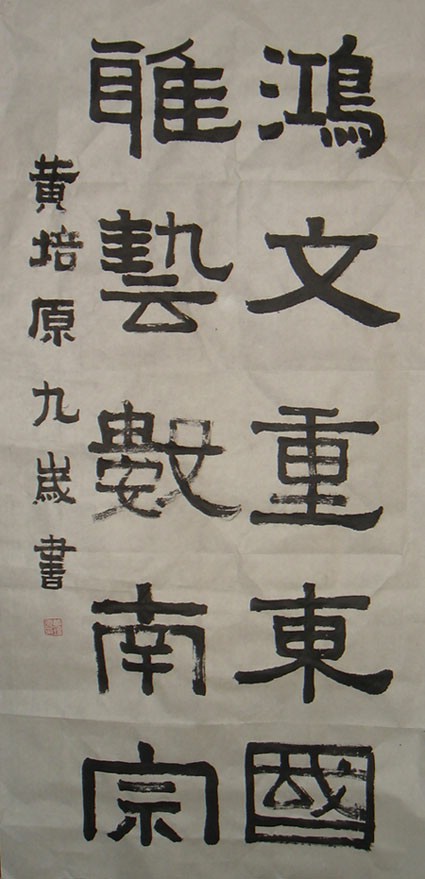 鴻文重東國
雅藝數南宗
黄培原九歲書